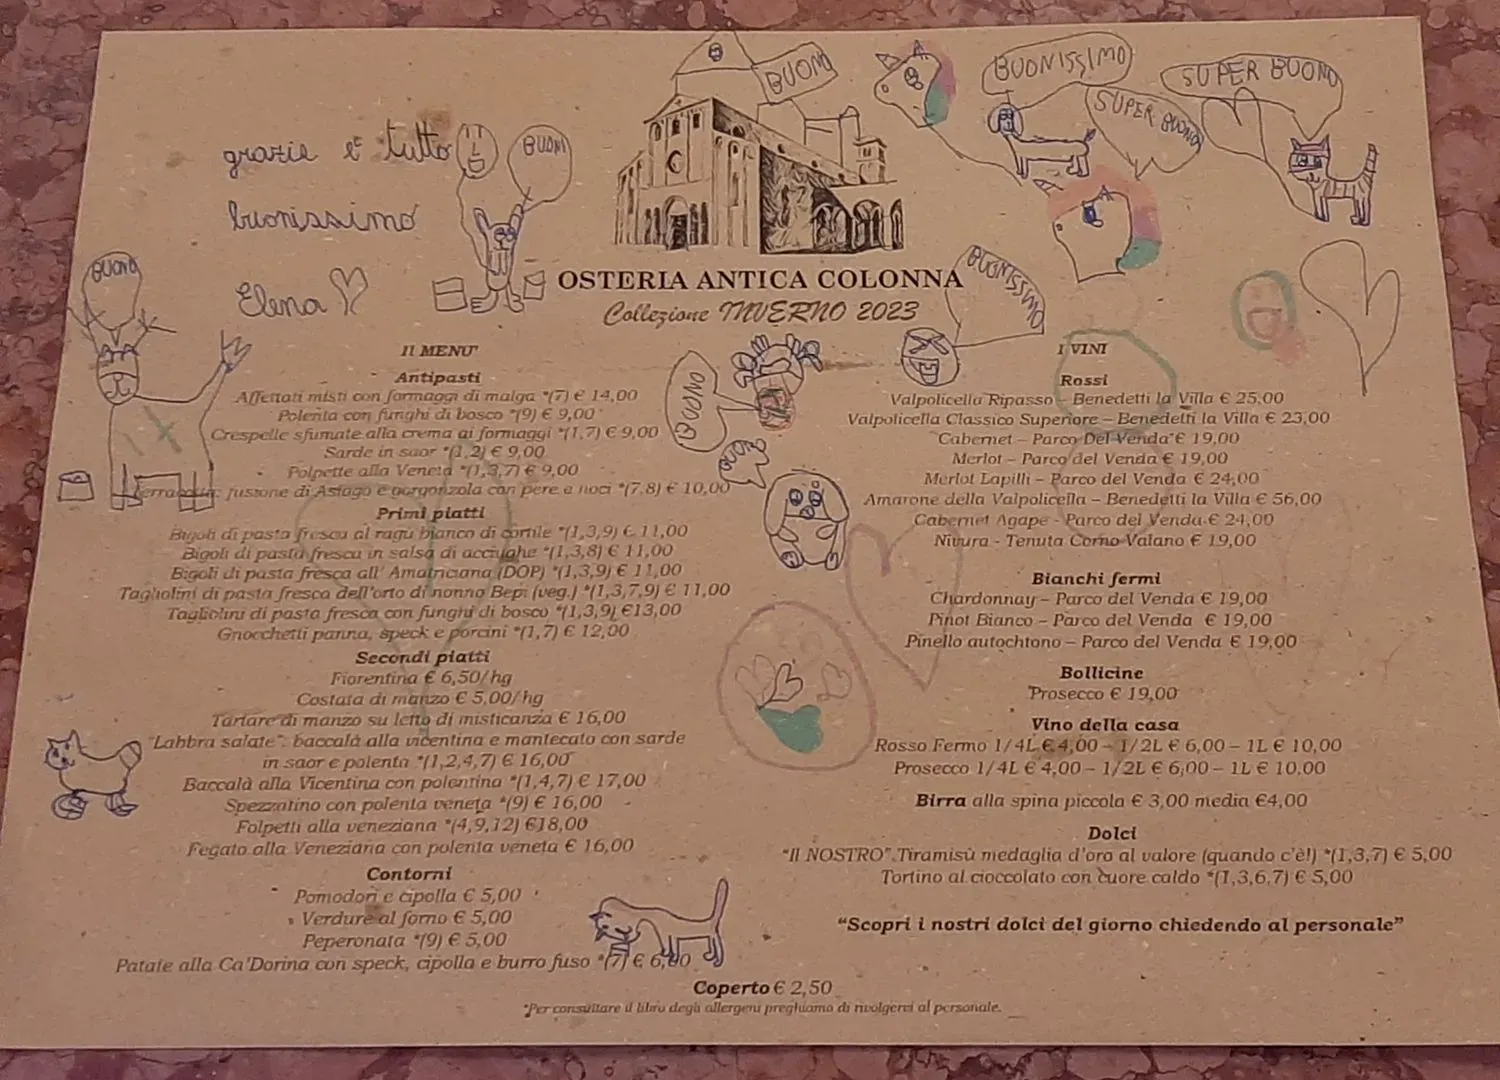 BUONO
BUONISSIMO
SUPER BUONO
SUPER BUONO
grazie e' tutto
BUONO
buonissimo
BUONO
Elena
BUONISSIMO
OSTERIA ANTICA COLONNA
Collezione INVERNO 2023
Il MENU'
Antipasti
Affettati misti con formaggi di malga *(7) € 14,00
Polenta con funghi di bosco *(9) € 9,00
Crespelle sfumate alla crema ai formaggi *(1,7) € 9,00
Sarde in saor *(1,2) € 9,00
Polpette alla Veneta *(1,3,7) € 9,00
fusione di Asiago e gorgonzola con pere e noci *(7.8) € 10,00
Primi piatti
Bigoli di pasta fresca al ragù bianco di cortile *(1,3,9) € 11,00
Bigoli di pasta fresca in salsa di acciughe *(1,3,8) € 11,00
Bigoli di pasta fresca all' Amatriciana (DOP) *(1,3,9) € 11,00
Tagliolini di pasta fresca dell'orto di nonno Bepi (veg.) *(1,3,7,9) € 11,00
Tagliolini di pasta fresca con funghi di bosco *(1,3,9) €13,00
Gnocchetti panna, speck e porcini *(1,7) € 12,00
Secondi piatti
Fiorentina € 6,50/hg
Costata di manzo € 5,00/hg
Tartare di manzo su letto di misticanza € 16,00
"Labbra salate": baccalà alla vicentina e mantecato con sarde
in saor e polenta *(1,2,4,7) € 16,00
Baccalà alla Vicentina con polentina *(1,4,7) € 17,00
Spezzatino con polenta veneta *(9) € 16,00
Folpetti alla veneziana *(4,9,12) €18,00
Fegato alla Veneziana con polenta veneta € 16,00
Contorni
Pomodori e cipolla € 5,00
Verdure al forno € 5,00
Peperonata *(9) € 5,00
Patate alla Ca'Dorina con speck, cipolla e burro fuso *(7) € 6,00
BUONO
BUONO
I VINI
Rossi
Valpolicella Ripasso – Benedetti la Villa € 25,00
Valpolicella Classico Superiore – Benedetti la Villa € 23,00
Cabernet – Parco Del Venda € 19,00
Merlot – Parco del Venda € 19,00
Merlot Lapilli – Parco del Venda € 24,00
Amarone della Valpolicella – Benedetti la Villa € 56,00
Cabernet Agape - Parco del Venda € 24,00
Nivura - Tenuta Corno Valano € 19,00
Bianchi fermi
Chardonnay – Parco del Venda € 19,00
Pinot Bianco – Parco del Venda € 19,00
Pinello autochtono – Parco del Venda € 19,00
Bollicine
Prosecco € 19,00
Vino della casa
Rosso Fermo 1/4L € 4,00 – 1/2L € 6,00 – 1L € 10,00
Prosecco 1/4L € 4,00 – 1/2L € 6,00 – 1L € 10,00
Birra alla spina piccola € 3,00 media €4,00
Dolci
"Il NOSTRO" Tiramisù medaglia d'oro al valore (quando c'è!) *(1,3,7) € 5,00
Tortino al cioccolato con cuore caldo *(1,3,6,7) € 5,00
"Scopri i nostri dolci del giorno chiedendo al personale"
Coperto € 2,50
*Per consultare il libro degli allergeni preghiamo di rivolgersi al personale.